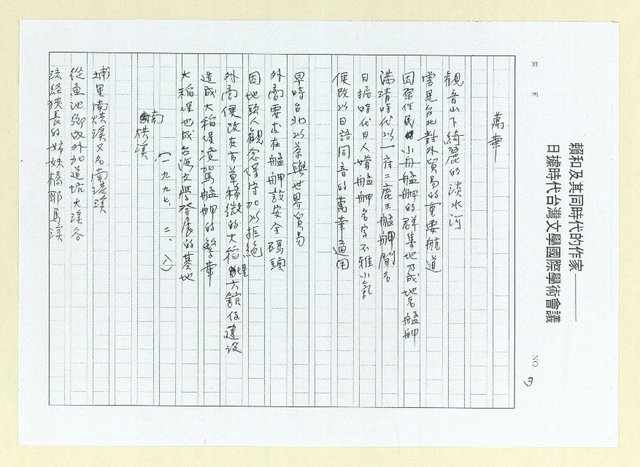 賴和及其同時代的作家——
日據時代台灣文學國際學術會議
NO. 3
萬華
觀音山下綺麗的淡水河
當是台北對外貿易的重要航道
因原住民小舟艋舺的群集地乃成地名艋舺
滿清時代以一府二鹿三艋舺聞名
日據時代日人嫌艋舺名字不雅小氣
便改以日語同音的萬華通用
早時台北以茶與世界貿易
外商要求在艋舺設安全碼頭
因地頭人觀念保守加以拒絕
外商便改在有草稀微的大稻埕大舘住建設
造成大稻埕凌駕艋舺的繁華
大稻埕也成台灣文學發展的基地
(一九九七、二、八)
南烘溪
埔里南烘溪又名南港溪
從魚池鄉政外加道坑大溪谷
流經狹長的姊妹橋即長溪